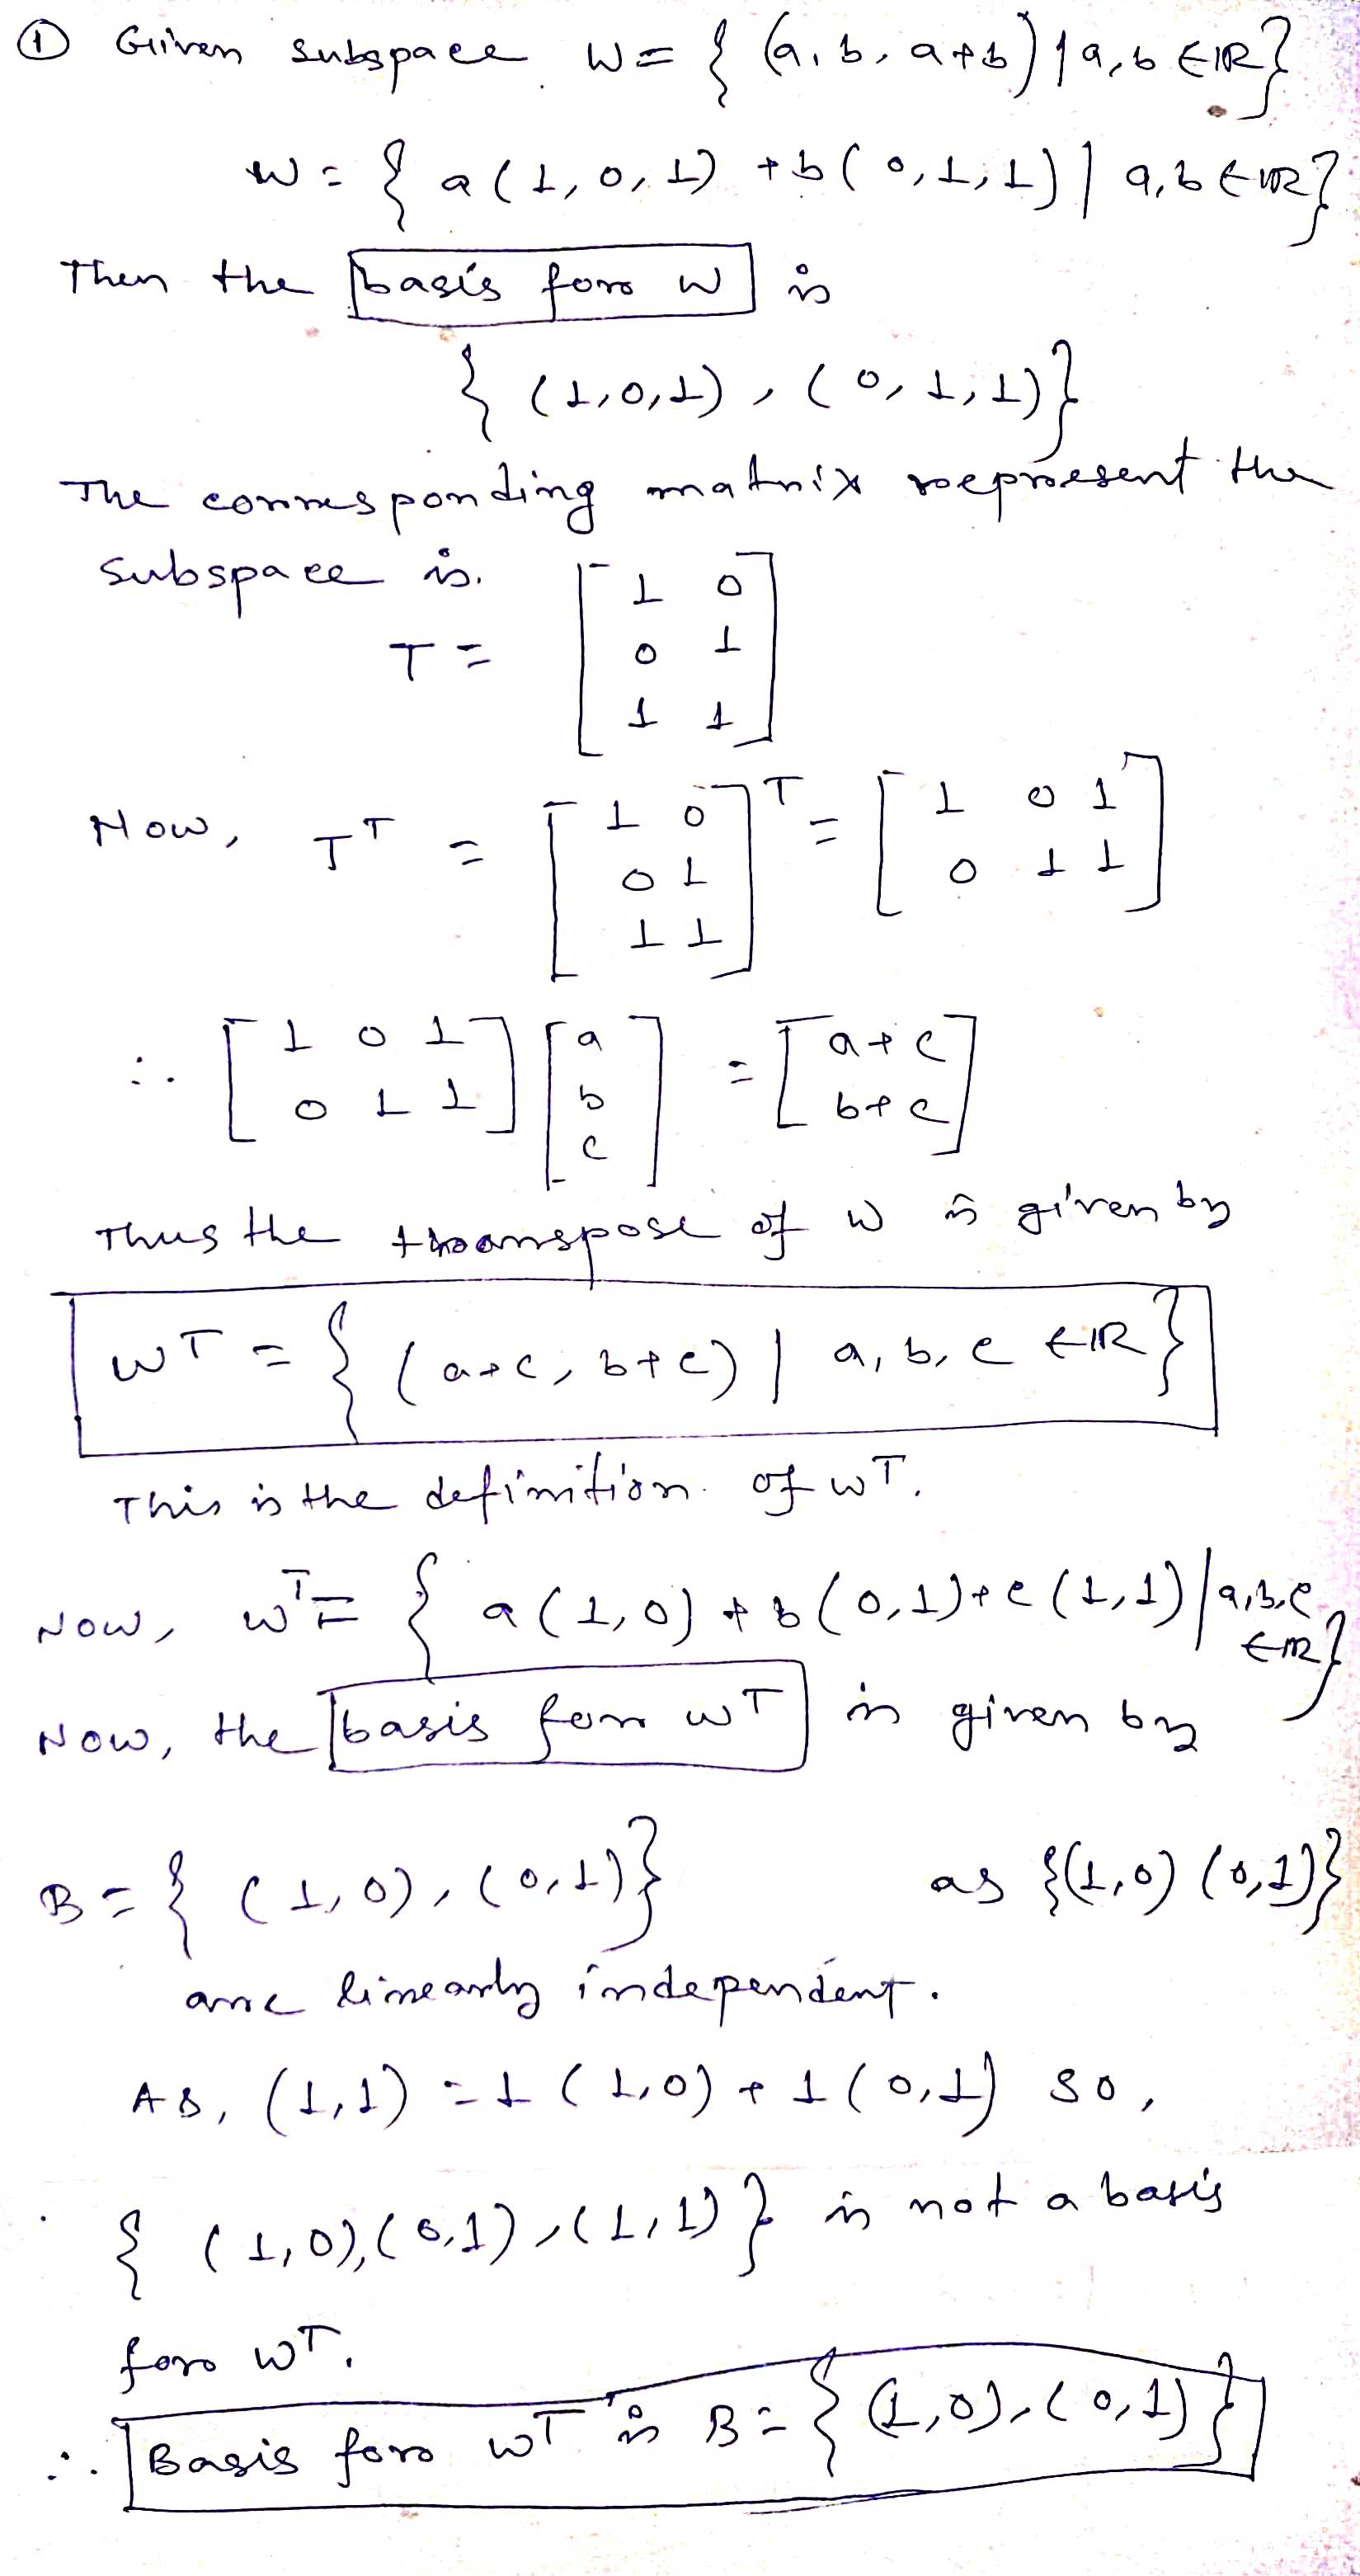 ① Given subspace W = { (a, b, a+b) | a, b ∈ ℝ }
W = { a(1, 0, 1) + b(0, 1, 1) | a, b ∈ ℝ }
Then the basis for W is
{ (1, 0, 1), (0, 1, 1) }
The corresponding matrix represent the
subspace is.
T = [ 1 0
0 1
1 1 ]
Now, T^T = [ 1 0
0 1
1 1 ]^T = [ 1 0 1
0 1 1 ]
∴ [ 1 0 1
0 1 1 ] [ a
b
c ] = [ a+c
b+c ]
Thus the transpose of W is given by
W^T = { (a+c, b+c) | a, b, c ∈ ℝ }
This is the definition of W^T.
Now, W^T = { a(1, 0) + b(0, 1) + c(1, 1) | a, b, c
∈ ℝ }
Now, the basis for W^T is given by
B = { (1, 0), (0, 1) } as {(1, 0) (0, 1)}
are linearly independent.
As, (1, 1) = 1 (1, 0) + 1 (0, 1) so,
{ (1, 0), (0, 1), (1, 1) } is not a basis
for W^T.
∴ Basis for W^T is B = { (1, 0), (0, 1) }